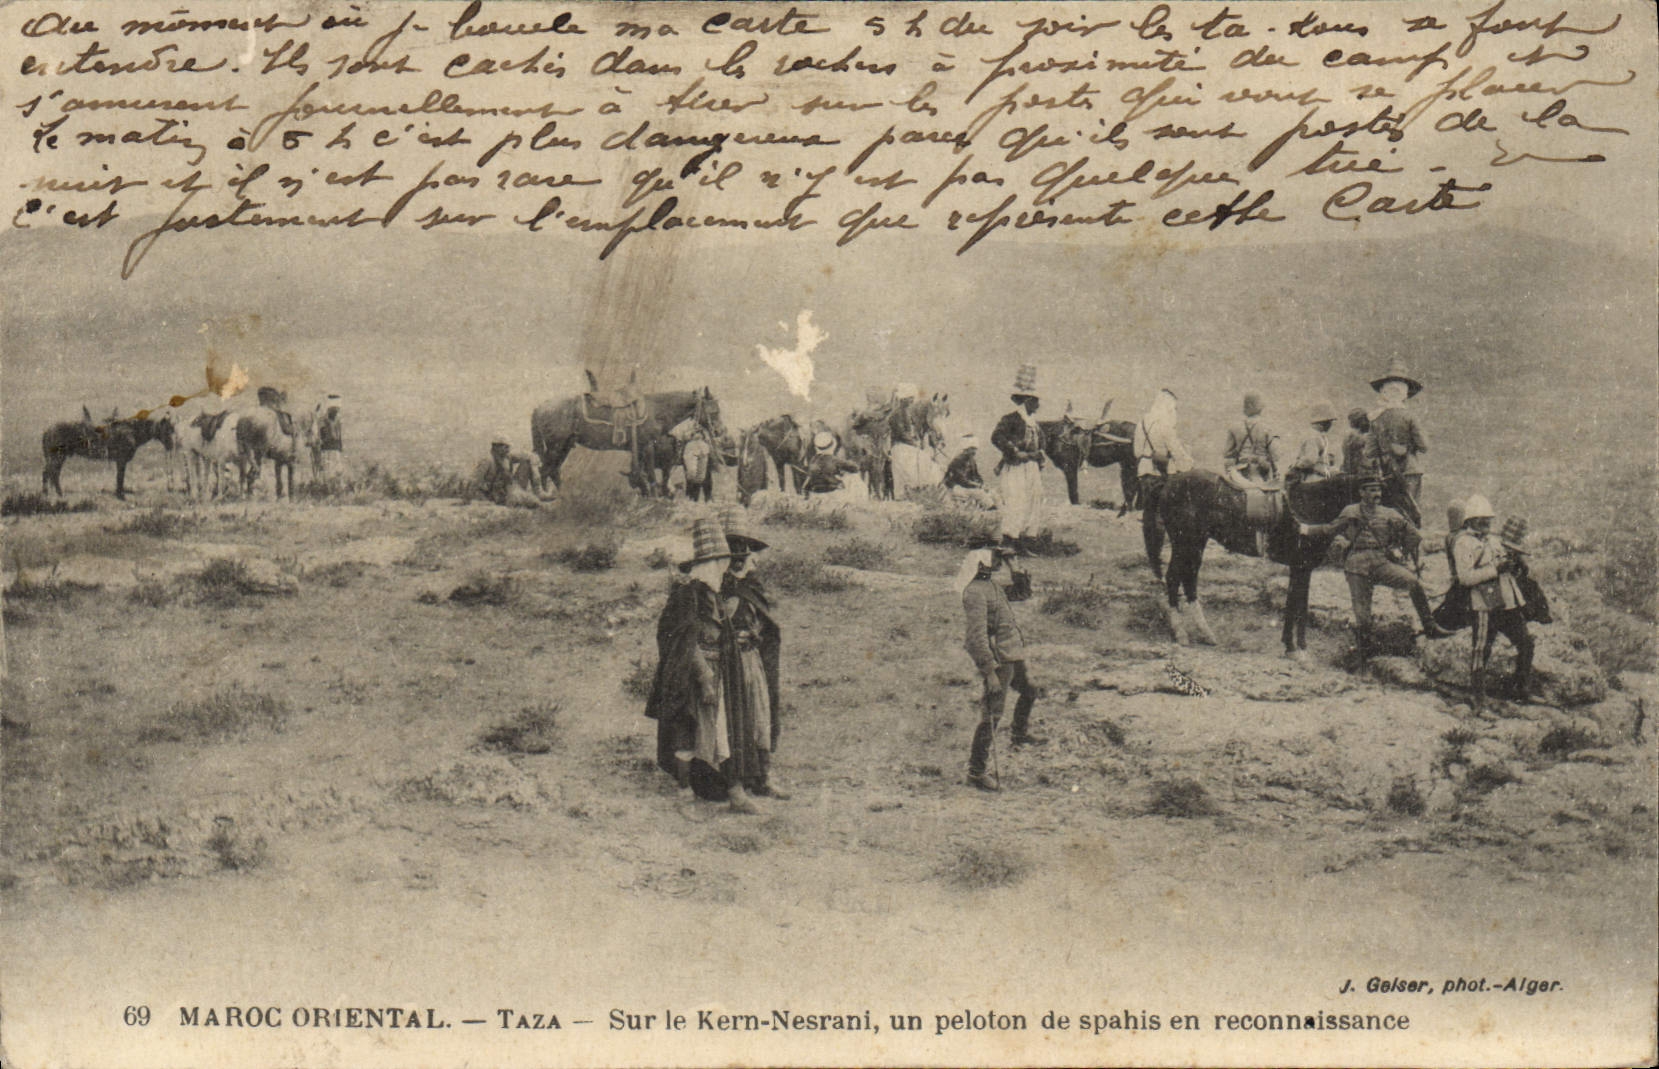 Au moment où je boucle ma carte 5 h du soir les ta-kous se font
entendre. Ils sont cachés dans les rochers à proximité du camp et
s'amusent journellement à tirer sur les postes qui vont se placer
Le matin à 5 h c'est plus dangereux parce qu'ils sont postés de la
nuit et il n'est pas rare qu'il n'y est pas quelque tué -
C'est justement sur l'emplacement que représente cette Carte
J. Geiser, phot.-Alger.
69 MAROC ORIENTAL. — TAZA — Sur le Kern-Nesrani, un peloton de spahis en reconnaissance